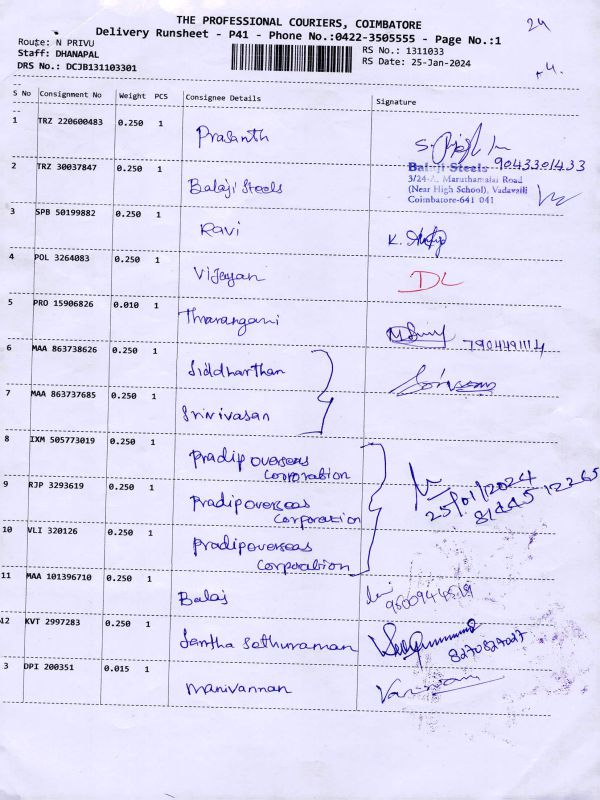 THE PROFESSIONAL COURIERS, COIMBATORE
24
Delivery Runsheet - P41 - Phone No.:0422-3505555 - Page No.:1
Route: N PRIVU
RS No.: 1311033
Staff: DHANAPAL
RS Date: 25-Jan-2024
DRS No.: DCJB131103301
S No Consignment No Weight PCS Consignee Details Signature
1 TRZ 220600483 0.250 1 Prasanth
9043301433
2 TRZ 30037847 0.250 1 Balaji Steels
Balaji Steels
3/24-A, Maruthamalai Road
(Near High School), Vadavalli
Coimbatore-641 041
3 SPB 50199882 0.250 1 Ravi K.
4 POL 3264083 0.250 1 Vijayan DL
5 PRO 15906826 0.010 1 Tharangani
7904491114
6 MAA 863738626 0.250 1 Siddharthan
7 MAA 863737685 0.250 1 Srinivasan
8 IXM 505773019 0.250 1 Pradip overseas
Corporation
25/01/2024
9 RJP 3293619 0.250 1 Pradip overseas
Corporation
10 VLI 320126 0.250 1 Pradip overseas
Corporation
11 MAA 101396710 0.250 1 Balaj
12 KVT 2997283 0.250 1 Santha Sethuraman
8270827027
3 DPI 200351 0.015 1 Manivannan